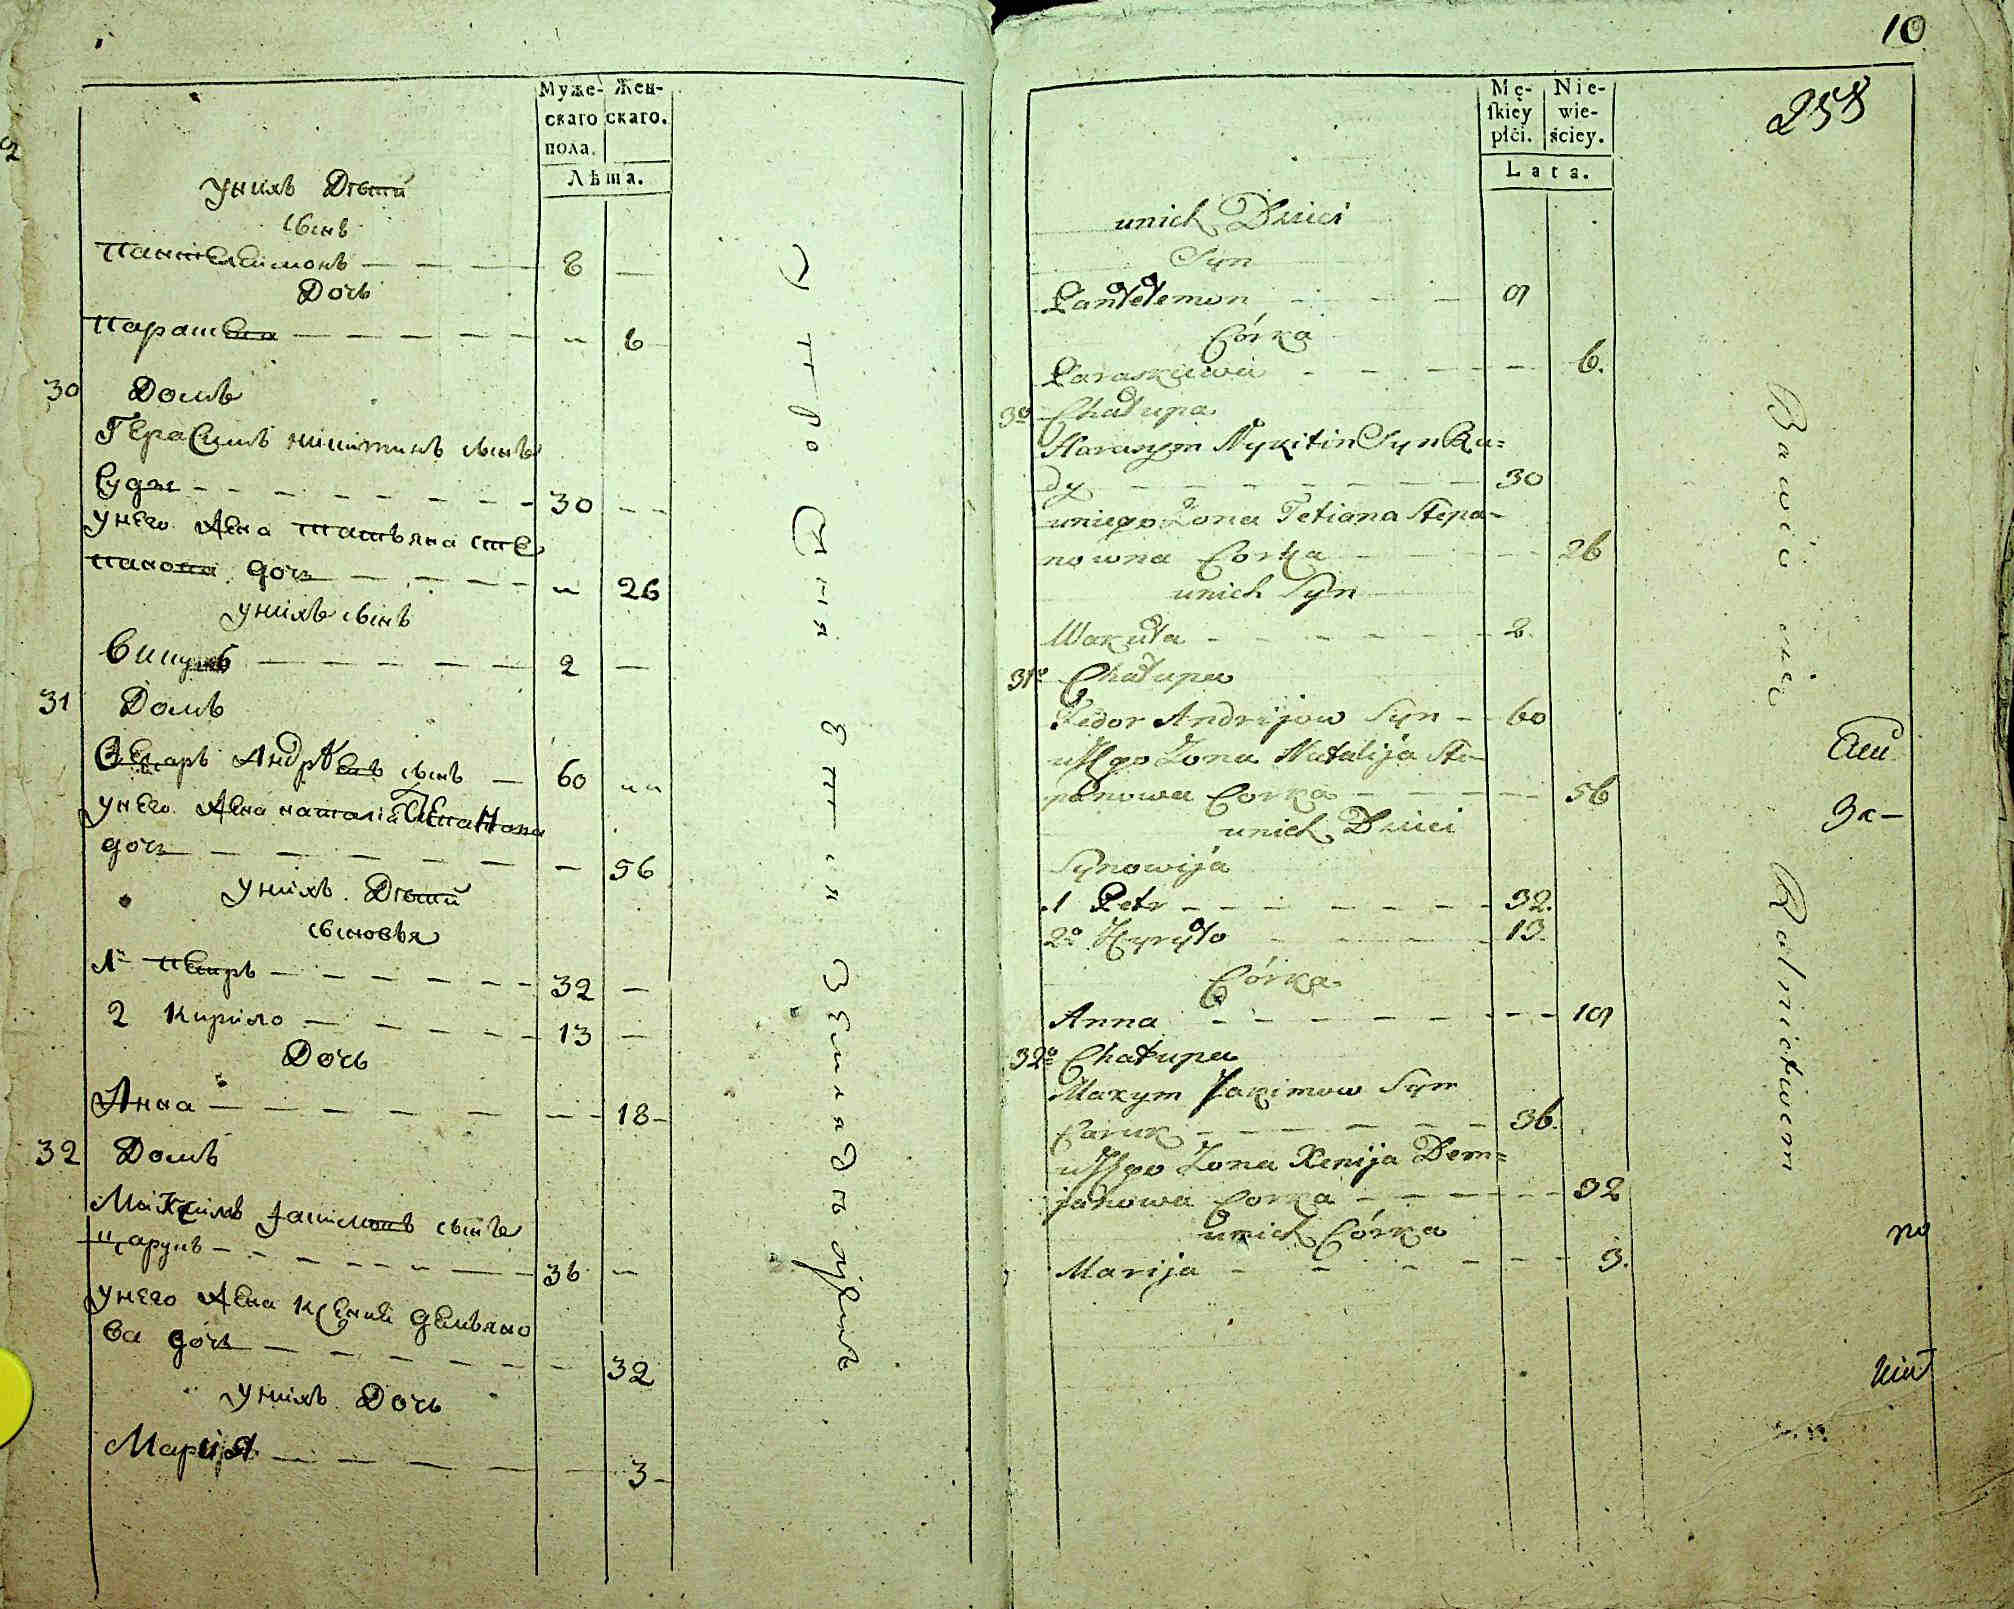 Муже-
скаго
пола.
Жен-
скаго.
Лѣта.
унихъ Дѣтей
сынъ
Пантелеимонъ — — — 8 —
Дочь
Параскевия — — — — — „ 6
30 Домъ
Герасимъ никитинъ сынъ
Рудыи — — — — — — 30 — —
унего жена татьяна сте
панова дочь — — — — „ 26
унихъ сынъ
— — — — — 2 —
31 Домъ
Ѳедоръ Андрѣевъ сынъ — 60 „„
унего жена наталія Степанова
дочь — — — — — — — 56
унихъ Дѣтей
сыновья
1й петръ — — — — — 32 —
2 Кирило — — — — — 13 —
Дочь
Анна — — — — — — — 18 —
32 Домъ
Максимъ Iакимовъ сынъ
Царукъ — — — — — — 36 —
унего жена ксения демьяно
ва дочь — — — — — — 32
унихъ Дочь
Мария — — — — — 3 —
10
258
Mę-
ſkiey
płći.
Nie-
wie-
ściey.
Lata.
unich Dzieci
Syn
Pantełemon — — — 9
Córka
Paraskiewia — — — — 6.
30 Chałupa
Harasym Nykitin Syn Ru=
dy — — — — — — — 30
uniego Zona Tetiana Stepa-
nowna Corka — — — — 26
unich Syn
Wakuła — — — — — 2.
31º Chałupa
Fedor Andrijow Syn — 60
uNgo Zona Natalija Ste-
panowa Corka — — — — 56
unich Dzieci
Synowija
1 Petr — — — — — — 32.
2º Kyryło — — — — — 13.
Córka
Anna — — — — — — — 19
32º Chałupa
Maxym Jakimow Syn
Caruk — — — — — — 36.
uNgo Zona Xenija Dem=
janowa Corka — — — — 32
unich Córka
Marija — — — — — — 3.
Bawić się Rolnictwem